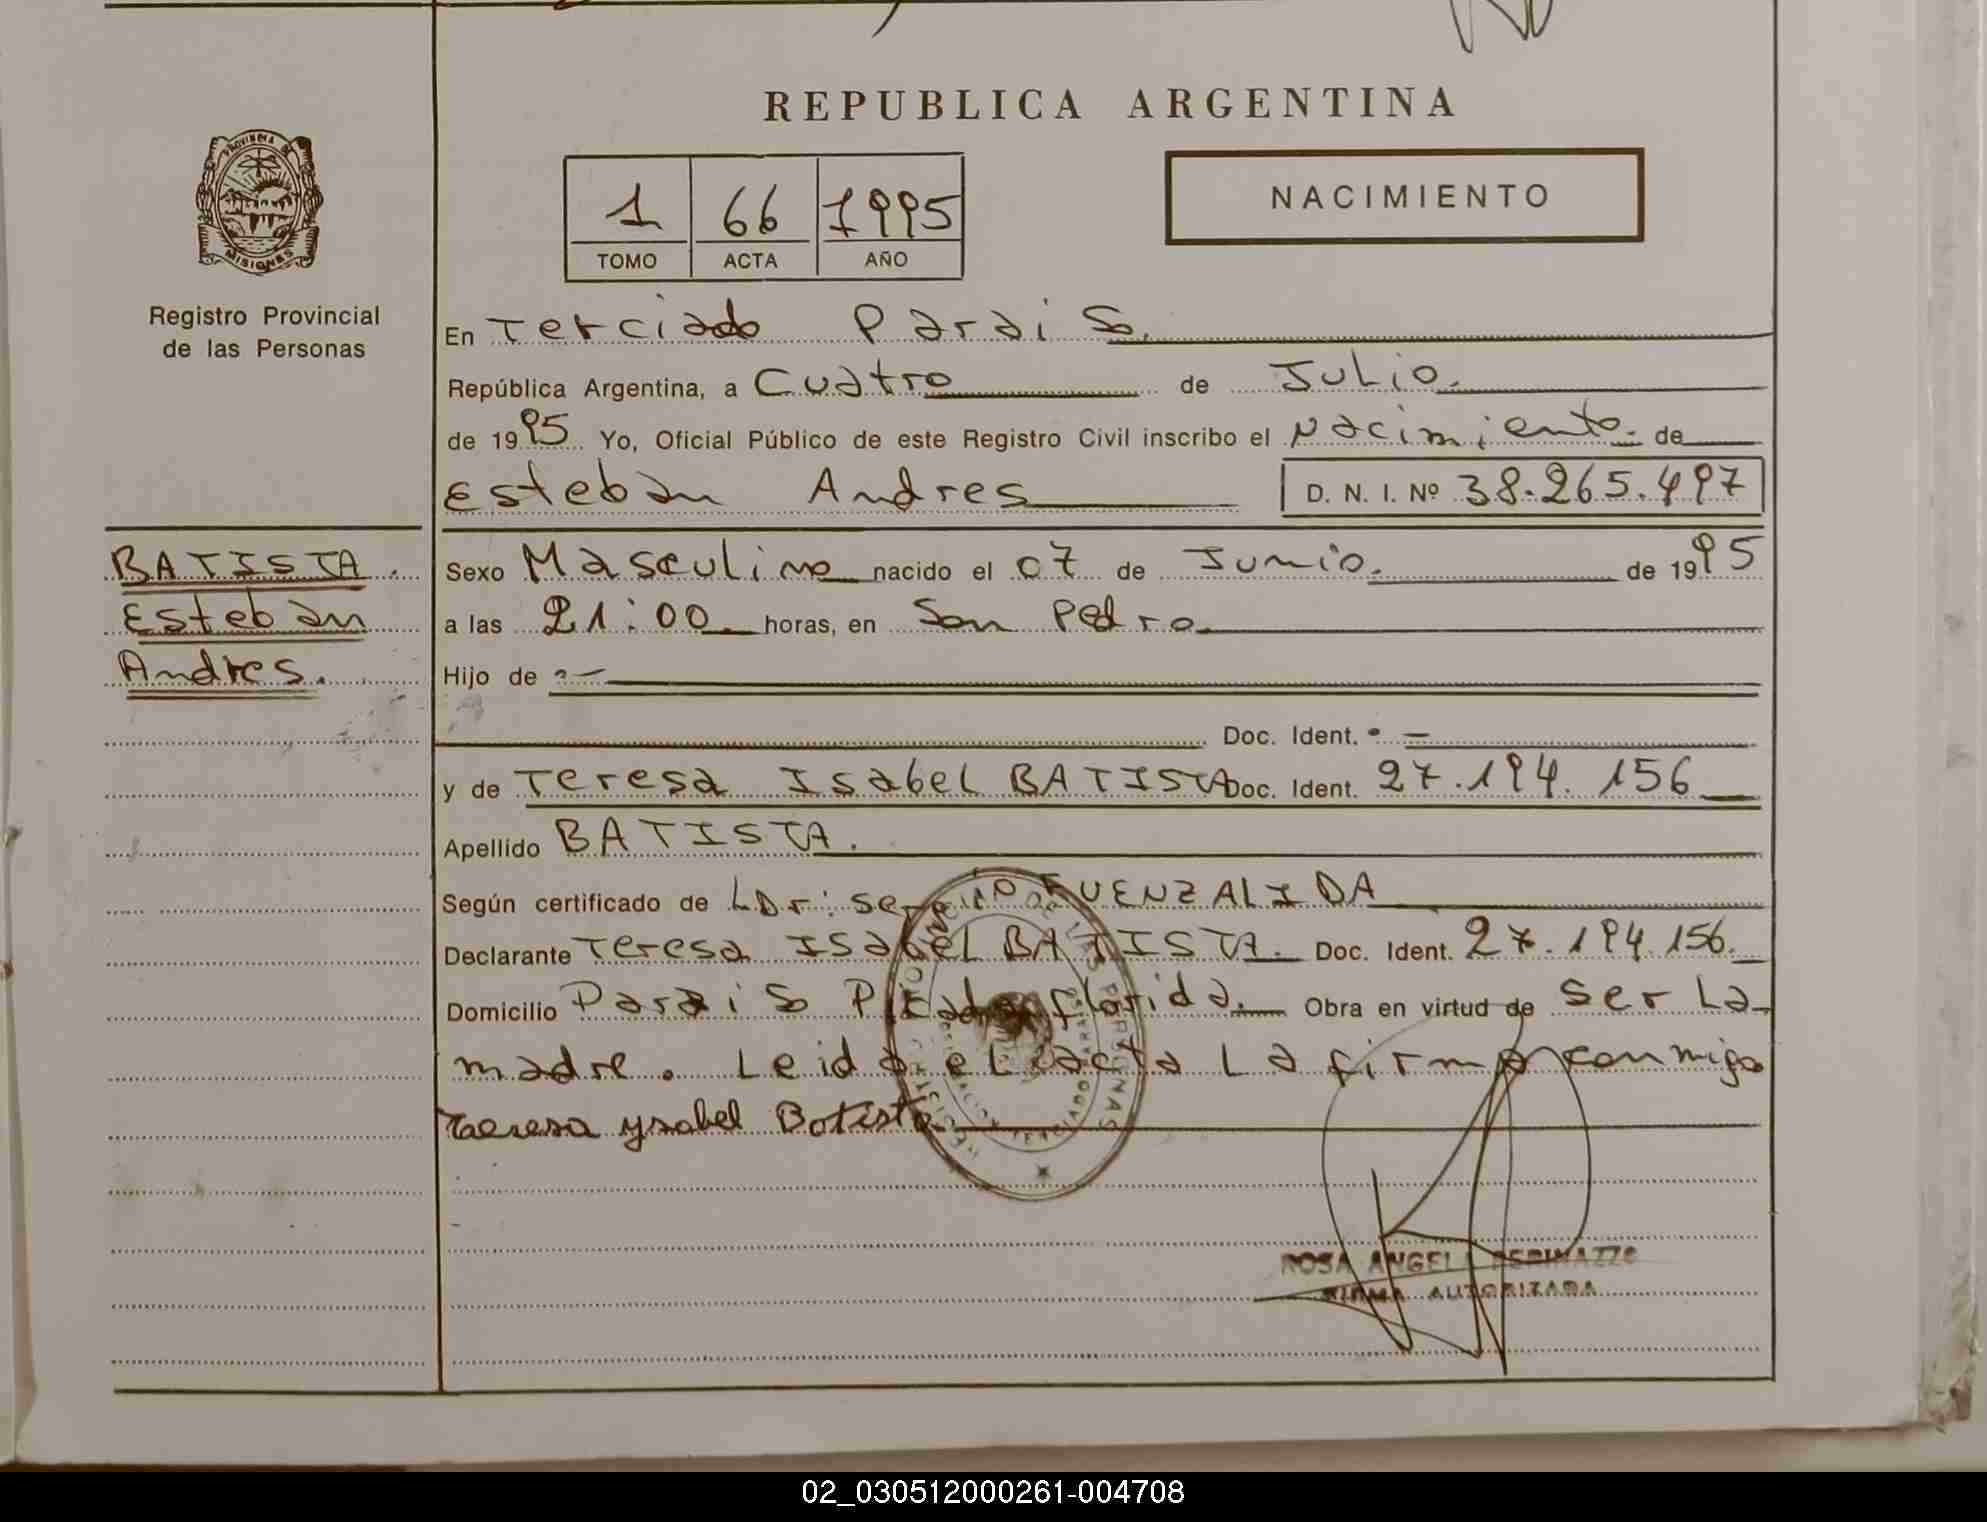 REPUBLICA ARGENTINA
PROVINCIA DE
MISIONES
Registro Provincial
de las Personas
1 66 1995
TOMO ACTA AÑO
NACIMIENTO
En Terciado Paraiso.
República Argentina, a Cuatro de Julio.
de 1995 Yo, Oficial Público de este Registro Civil inscribo el Nacimiento de
Esteban Andres D. N. I. Nº 38.265.497
BATISTA.
Esteban
Andres.
Sexo Masculino nacido el 07 de Junio. de 1995
a las 21:00 horas, en San Pedro
Hijo de
Doc. Ident. -
y de Teresa Isabel BATISTA Doc. Ident. 27.194.156
Apellido BATISTA.
Según certificado de FUENZALIDA
Declarante Teresa Isabel BATISTA. Doc. Ident. 27.194.156.
Domicilio Paraiso Picada florida. Obra en virtud de ser La
madre. Leida el acta La firma conmigo
Teresa ysabel Batista
ROSA ANGELA
FIRMA AUTORIZADA
02_030512000261-004708